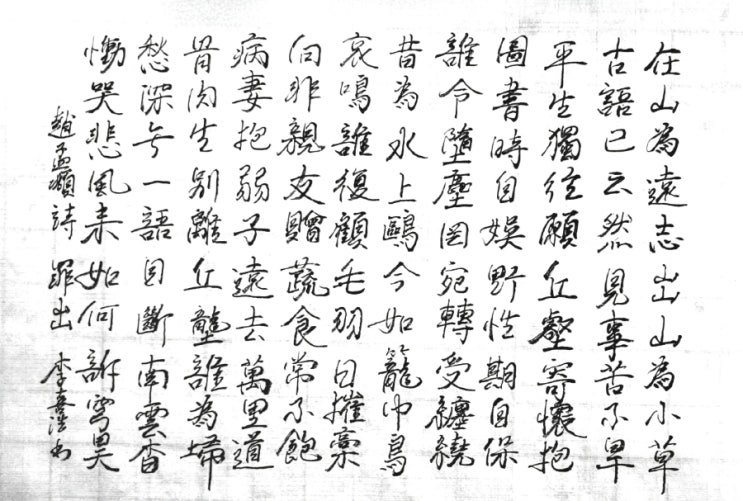 在山為遠志出山為小草
古語已云然見事苦不早
平生獨往願丘壑寄懷抱
圖書時自娛野性期自保
誰令墮塵罔宛轉受纏繞
昔為水上鷗今如籠中鳥
哀鳴誰復顧毛羽日摧槀
向非親友贈蔬食常不飽
病妻抱弱子遠去萬里道
骨肉生別離丘壟誰為埽
愁深无一語目斷南雲杳
慟哭悲風来如何訴穹昊
趙孟頫詩 罪出 李